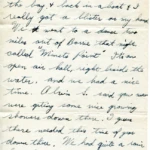 the bay & back in a boat & I
really got a blister on my hand
We went to a dance two
miles out of here that night
called "Minute Point". It's an
open air hall right beside the
water. and we had a nice
time. Alvin is said you
were giving some one
showers down there. I guess
there needed this time of year
down there. We had quite a rain